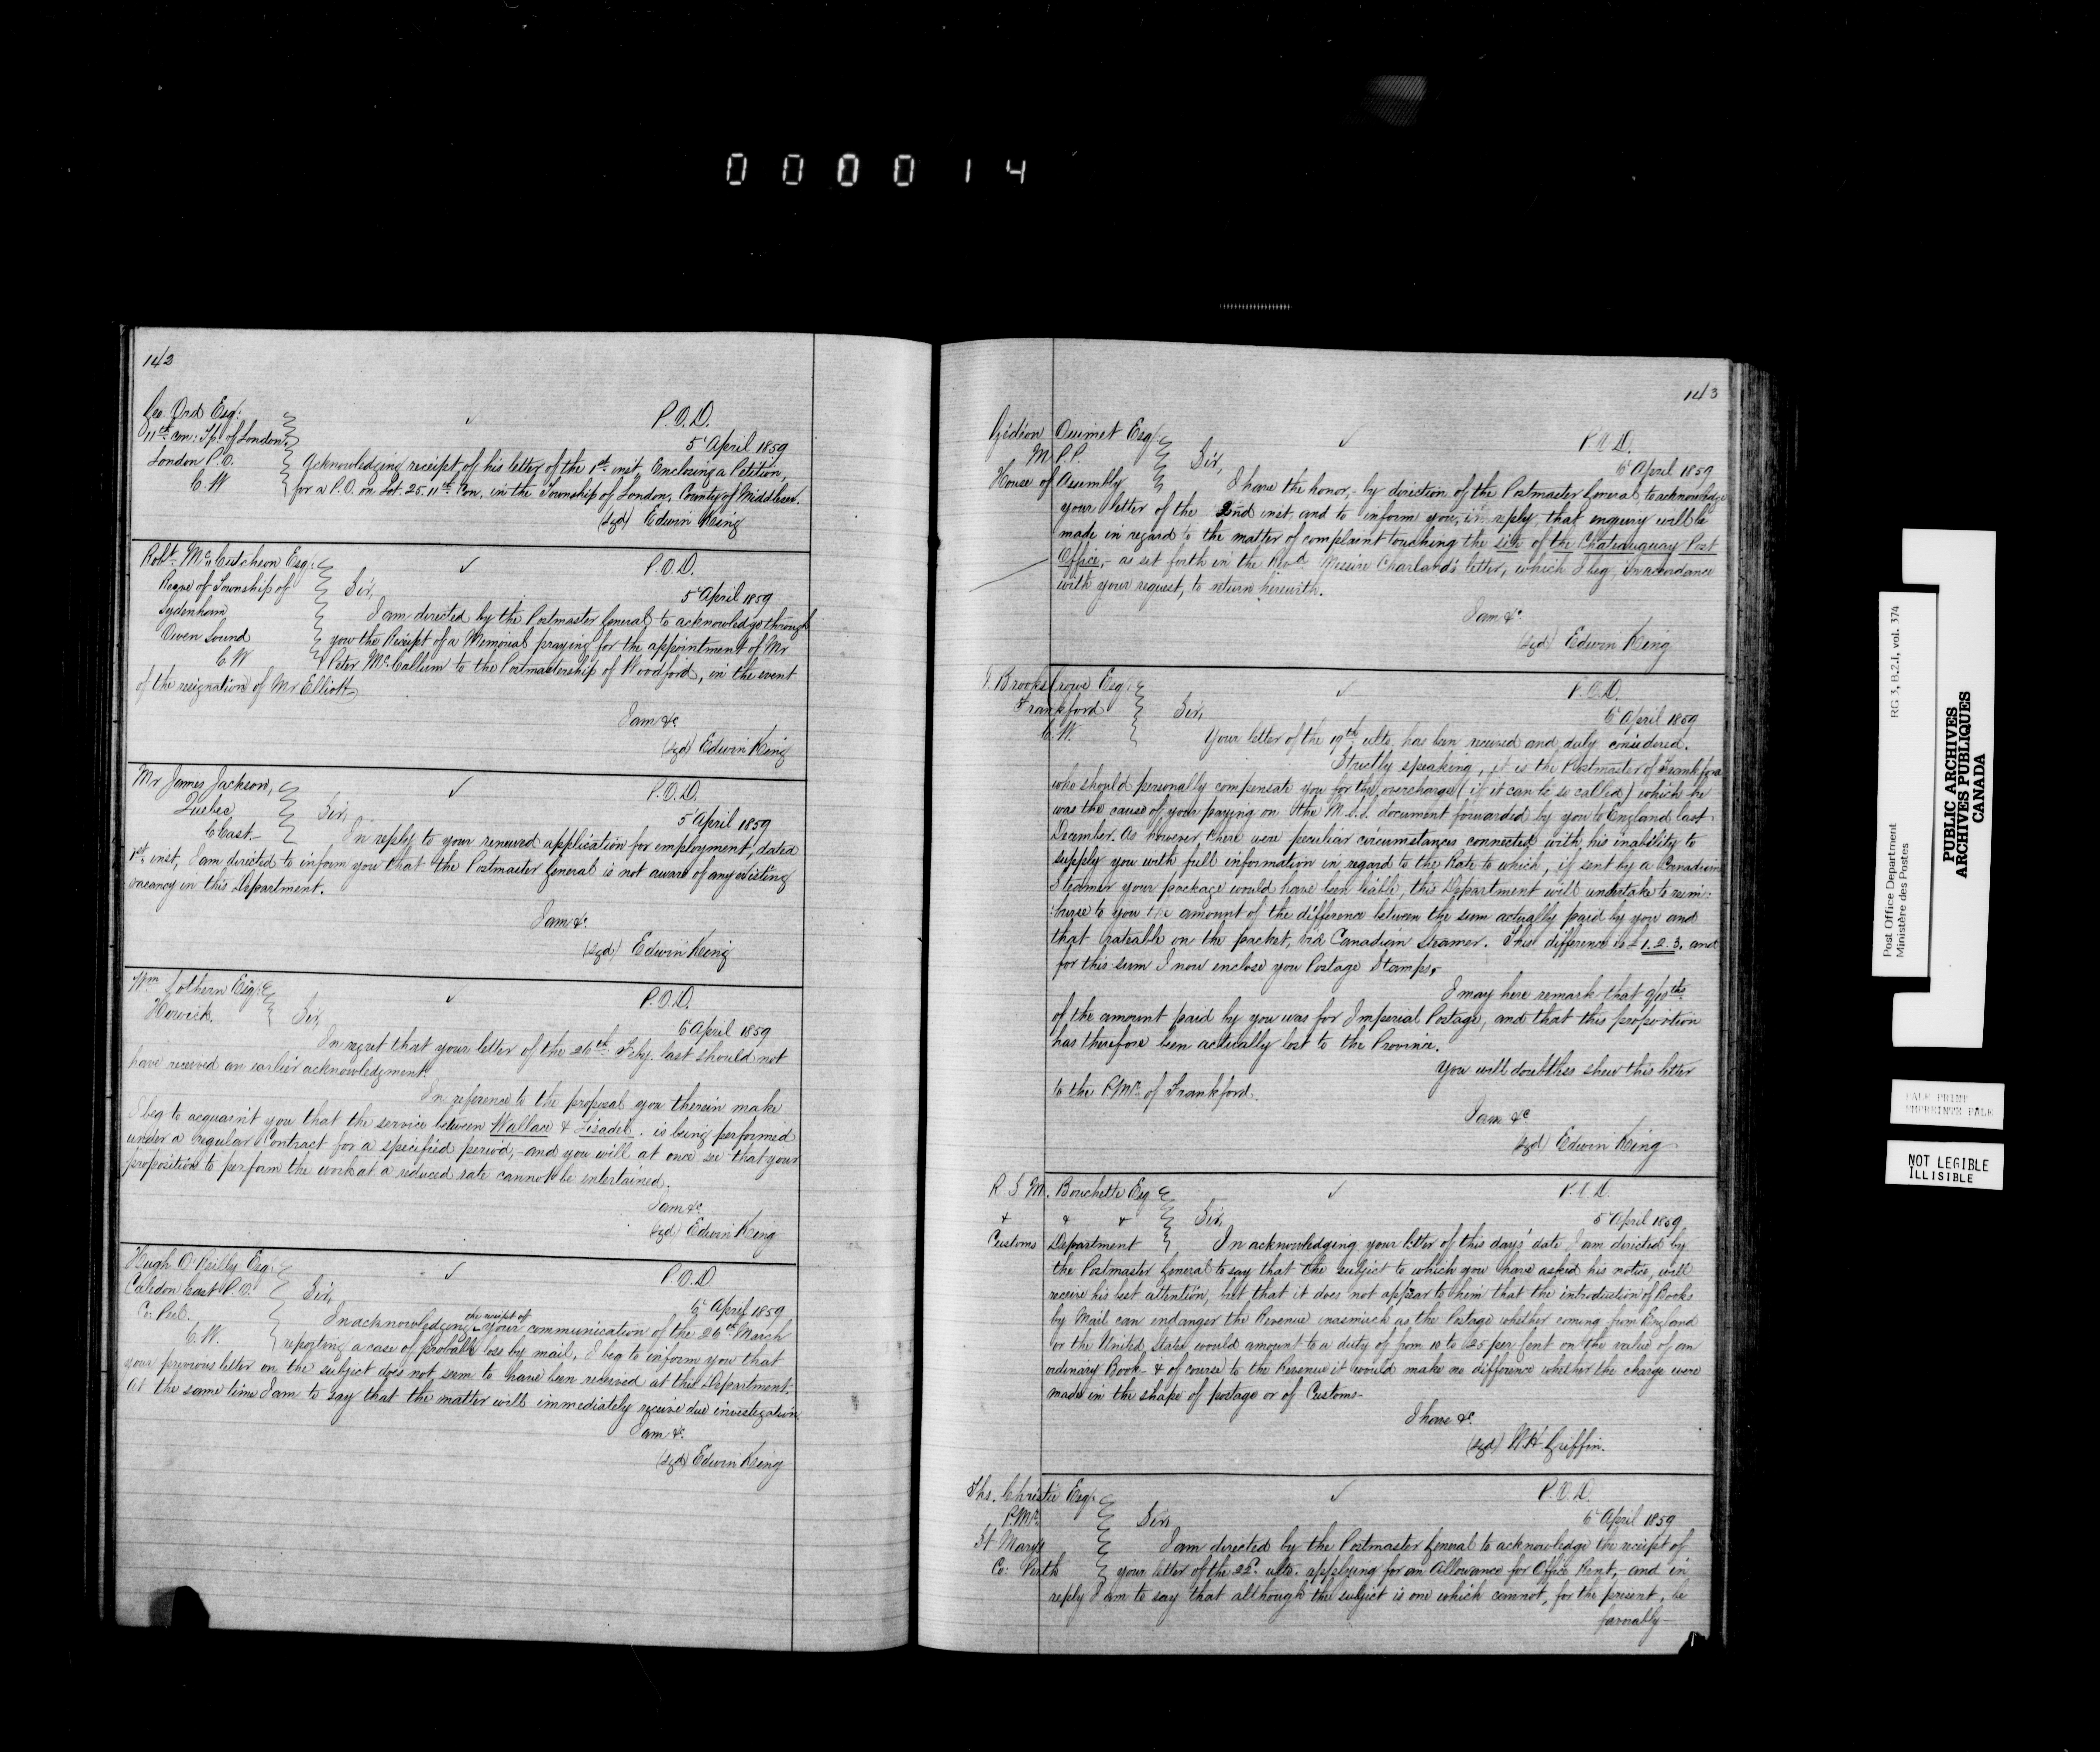 000014
142
Geo. Ord Esq:
11th Con: Tp. of London.
London P.O.
C.W
P.O.D.
5 April 1859
Acknowledging receipt of his letter of the 1st inst, Enclosing a Petition,
for a P.O. on Lot. 25. 11th Con. in the Township of London, County of Middlesex.
(sgd) Edwin King
Robt. McCutcheon Esq:
Reeve of Township of
Sydenham
Owen Sound
C.W
P.O.D.
5 April 1859
Sir,
I am directed by the Postmaster General to acknowledge through
you the Receipt of a Memorial praying for the appointment of Mr
Peter McCallum to the Postmastership of Woodford, in the event
of the resignation of Mr Elliott
I am &c
(sgd) Edwin King
Mr James Jackson,
Quebec,
C East.
P.O.D.
5 April 1859
Sir,
In reply to your renewed application for employment, dated
1st inst, I am directed to inform you that the Postmaster General is not aware of any existing
vacancy in this Department.
I am &c
(sgd) Edwin King
Wm Lothern Esq:
Howick.
P.O.D.
6 April 1859
Sir,
In regret that your letter of the 26th Feby. last should not
have received an earlier acknowledgment.
In reference to the proposal you therein make
I beg to acquaint you that the service between Wallace & Lisadel. is being performed
under a regular Contract for a specified period, and you will at once see that your
proposition to perform the work at a reduced rate cannot be entertained.
I am &c
(sgd) Edwin King
Hugh O'Reilly Esq:
Caledon East P.O.
Co: Peel.
C.W.
P.O.D
6 April 1859
Sir,
In acknowledging the receipt of your communication of the 26th March
reporting a case of probable loss by mail, I beg to inform you that
your previous letter on the subject does not seem to have been received at this Department.
At the same time I am to say that the matter will immediately receive due investigation
I am &c.
(sgd) Edwin King
143
Gédéon Ouimet Esq:
M.P.P.
House of Assembly
P.O.D.
6 April 1859
Sir,
I have the honor,- by direction of the Postmaster General to acknowledge
your letter of the 2nd inst. and to inform you, in reply, that enquiry will be
made in regard to the matter of complaint touching the site of the Chateauguay Post
Office,- as set forth in the Revd. Messire Charland's letter, which I beg, in accordance
with your request, to return herewith.
I am &c
(sgd) Edwin King
T. Brooks Crowe Esq:
Frankford
C.W.
P.O.D.
6 April 1859
Sir,
Your letter of the 19th ulto. has been received and duly considered.
Strictly speaking, it is the Postmaster of Frankford
who should personally compensate you for the overcharge (if it can be so called) which he
was the cause of your paying on the M.S.S. document forwarded by you to England last
December. As however there were peculiar circumstances connected with his inability to
supply you with full information in regard to the Rate to which, if sent by a Canadian
Steamer your package would have been liable, this Department will undertake to reim:
:burse to you the amount of the difference between the sum actually paid by you and
that rateable on the packet, viâ Canadian Steamer. This difference is £1.2.3. and
for this sum I now enclose you Postage Stamps.
I may here remark that 9/10ths
of the amount paid by you was for Imperial Postage, and that this proportion
has therefore been actually lost to the Province.
You will doubtless shew this letter
to the P.Mr. of Frankford.
I am &c
(sgd) Edwin King
R. S. M. Bouchette Esq
& & &
Customs Department
P.O.D.
5 April 1859
Sir,
In acknowledging your letter of this days' date I am directed by
the Postmaster General to say that the subject to which you have asked his notice, will
receive his best attention, but that it does not appear to him that the introduction of Books
by Mail can endanger the Revenue inasmuch as the Postage whether coming from England
or the United States would amount to a duty of from 10 to 25 per Cent on the value of an
ordinary Book & of course to the Revenue it would make no difference whether the charge were
made in the shape of postage or of Customs
I have &c.
(sgd) W.H. Griffin.
Ths. Christie Esq:
P.Mr.
St Marys
Co: Perth
P.O.D.
6 April 1859
Sir,
I am directed by the Postmaster General to acknowledge the receipt of
your letter of the 22d. ulto. applying for an Allowance for Office Rent,- and in
reply I am to say that although the subject is one which cannot, for the present, be
formally
Post Office Department
Ministère des Postes
RG 3, B.2.I, vol. 374
PUBLIC ARCHIVES
ARCHIVES PUBLIQUES
CANADA
PALE PRINT
EMPREINTE PALE
NOT LEGIBLE
ILLISIBLE